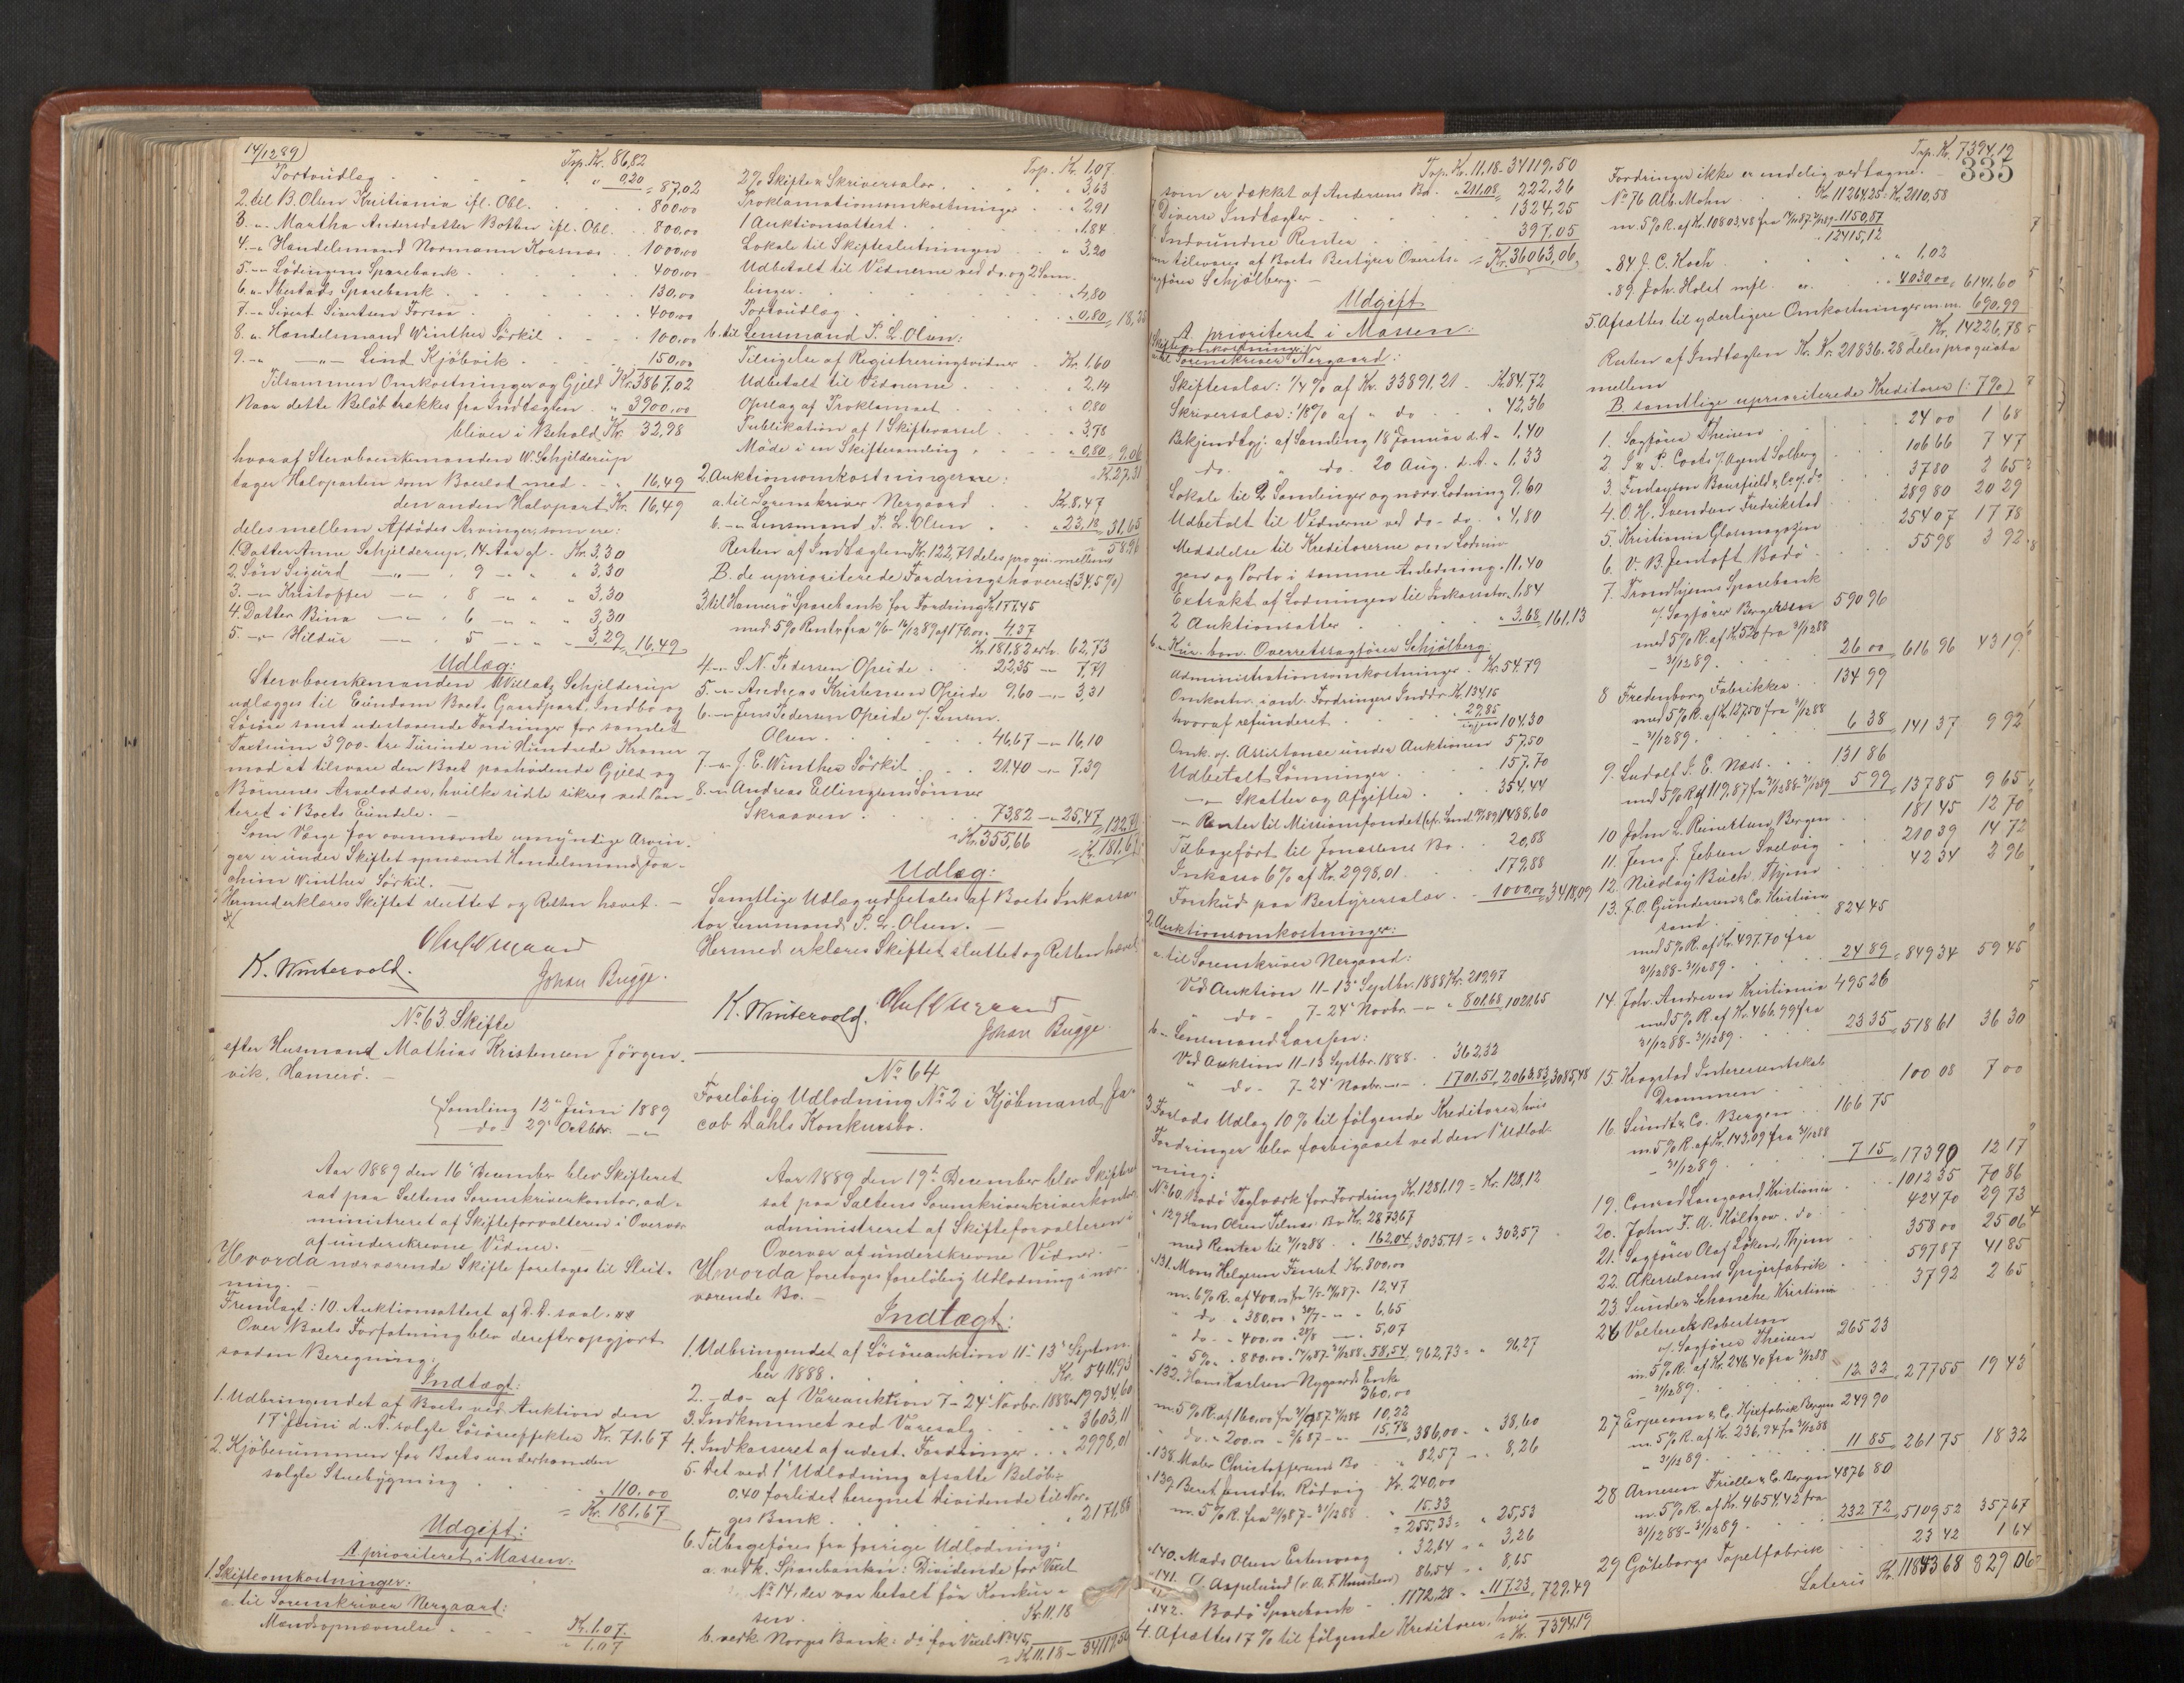 14/12 89)
Trp. Kr. 86,82
Portoudlæg . . . . " 0,20 = 87,02
2. til B. Olsen Kristiania ifl. Obl. . . 800,00
3. -"- Martha Andersdatter Botten ifl. Obl. . . 800,00
4. -"- Handelsmand Normann Korsnæs . . 1000,00
5. -"- Lödingens Sparebank . . . 400,00
6. -"- Ibestads Sparebank . . . 130,00
7. -"- Sivert Sivertsen Forsaa . . . 400,00
8. -"- Handelsmand Winther Sörkil . . . 100,00
9. -"- -"- Lind Kjöbvik . . . 150,00
Tilsammen Omkostninger og Gjeld Kr. 3867,02
Naar dette Belöb trækkes fra Indtægten . . " 3900,00
bliver i Behold Kr. 32,98
hvoraf Stervboenkemanden W. Schjilderup
tager Halvparten som Boeslod med . . " 16,49
den anden Halvpart Kr. 16,49
deles mellem Afdödes Arvinger, som ere:
1. Datter Anne Schjelderup, 14 Aar gl. Kr. 3,30
2. Sön Sigurd -"- " 9 -"- " " 3,30
3. -"- Kristoffer -"- " 8 -"- " " 3,30
4. Datter Rina -"- " 6 -"- " " 3,30
5. -"- Hildur -"- " 5 -"- " " 3,29 = 16,49
Udlæg:
Stervboenkemanden Willatz Schjilderup
udlægges til Eiendom Boets Gaardpart, Indbo og
Lösöre samt udestaaende Fordringer for samlet
Taxtsum 3900 - tre Tusinde ni Hundrede Kroner
mod at tilsvare den Boet paahvilende Gjeld og
Börnenes Arvelodder, hvilke sidste sikres ved Pan-
teret i Boets Eiendele. -
Som Værge for ovennævnte umyndige Arvin-
ger er under Skiftet opnævnt Handelsmand Joa-
chim Winther Sörkil. -
Hermed erklæres Skiftet sluttet og Retten hævet. -
K. Wintervold.
Johan Bugge.
No. 63. Skifte
efter Husmand Mathias Kristensen Jörgen-
vik, Hamerö. -
Samling 12te Juni 1889
do - 29' Octbr. -"-
Aar 1889 den 16' December blev Skifteret
sat paa Saltens Sorenskriverkontor, ad-
ministreret af Skifteforvalteren i Overvær
af underskrevne Vidner. -
Hvorda nærværende Skifte foretoges til Slut-
ning. -
Fremlagt: 10. Auktionsattest af D.D. saal.
Over Boets Forfatning blev derefter opgjort
saadan Beregning:
Indtægt:
1. Udbringendet af Boets ved Auktion den
17' Juni d. A. solgte Lösöreeffekter Kr. 71.67
2. Kjöbesummen for Boets underhaanden
solgte Stuebygning . . . " 110.00
= Kr. 181,67
Udgift:
A. prioriteret i Massen:
1. Skifteomkostninger:
a. til Sorenskriver Nergaard:
Mandsopnævnelse . . . Kr. 1.07.
" 1.07
Trp. Kr. 1.07
2% Skifte & Skriversalær . . . " 3,63
Proklamationsomkostninger . . " 2,91
1 Auktionsattest . . . " 1.84
Lokale til Skifteslutningen . . " 3,20
Udbetalt til Vidnerne ved do. og 2 Sam-
linger. . . . " 4,80
Portoudlæg . . . " 0,80
b. til Lensmand P. L. Olsen:
Tilsigelse af Registreringsvidner . . Kr. 1,60
Udbetalt til Vidnerne . . . " 2,14
Opslag af Proklamaet . . . " 0,80
Publikation af 1 Skiftevarsel . . " 3,78
Möde i en Skiftesamling . . . " 0,80 = 9,06
2. Auktionsomkostningerne:
a. til Sorenskriver Nergaard . . Kr. 8,47
b. -"- Lensmand P. L. Olsen . . " 23,18 = 31,65
Resten af Indtægten Kr. 122,71 deles pro qu. mellem
B. de uprioriterede Fordringshavere (34,5%)
3. til Hamerö Sparebank for Fordring Kr. 177.45
K. 181,82 erh. 62,73
4. -"- S. N. Pedersen Opeide . . 22,35 -"- 7,71
5. -"- Andreas Kristensen Opeide 9,60 -"- 3,31
6. -"- Jens Pedersen Opeide v/ Lensm.
Olsen . . . 46,67 -"- 16,10
7. -"- J. E. Winther Sörkil . . . 21.40 -"- 7.39
8. -"- Andreas Ellingsens Sönner
Skraaven . . . 73,82 -"- 25,47
= Kr. 355,66
Udlæg:
Samtlige Udlæg udbetales af Boets Inkassa-
tor Lensmand P. L. Olsen. -
Hermed erklæres Skiftet sluttet og Retten hævet.
K. Wintervold.
Johan Bugge.
No. 64
Foreløbig Udlodning No. 2 i Kjöbmand Ja-
cob Dahls Konkursbo.
Aar 1889 den 19de December blev Skifteret
sat paa Saltens Sorenskriverkontor
administreret af Skifteforvalteren i
Overvær af underskrevne Vidner. -
Hvorda foretoges foreløbig Udlodning i nær-
værende Bo. -
Indtægt:
1. Udbringendet af Lösöreauktion 11' - 13' Septem-
ber 1888 . . . Kr. 5411,93
2. -do- af Vareauktion 7 - 24' Novbr. 1888 " 19934,60
3. Indkommet ved Varesalg . . " 3603,11
4. Indkasseret af udest. Fordringer . . " 2998,01
5. Det ved 1' Udlodning afsatte Belöb:
0.40 forlidet beregnet Dividende til Nor-
ges Bank . . . 2171,85
6. Tilbageföres fra forrige Udlodning:
a. vedk. Sparebanken: Dividende for Vexel
No. 14, der var betalt för Konkur-
sen. . . . Kr. 11.18
b. vedk Norges Bank: do for Vexel No. 45,
= Kr. 11.18 - 34119,50
Trp. Kr. 11.18 - 34119,50
som er dækket af Andersens Bo. " 211,08 = 222,26
7. Diverse Indtægter . . . 1324,25
8. Indvundne Renter . . . 397,05
som tilsvares af Boets Bestyrer Overrets- = Kr. 36063,06
sagförer Schjölberg. -
Udgift
A. prioriteret i Massen:
1. Skifteomkostninger:
a. til Sorenskriver Nergaard:
Skiftesalær: 1/4 % af Kr. 33891,21 . Kr. 84,72
Skriversalær: 1/8 % af " do . . " 42,36
Bekjendtgj. af Samling 18 Januar d. A. " 1,40
do. " do. 20 Aug. d. A. " 1,33
Lokale til 2 Samlinger og nærv. Lodning 9,60
Udbetalt til Vidnerne ved do - do. " 4,80
Meddelelse til Kreditorerne om Lodnin-
gen og Porto i samme Anledning. " 11,40
Extrakt af Lodningen til Inkassator " 1,84
2 Auktionsatter . . . " 3,68 = 161,13
b. -"- Kur. bon. Overretssagförer Schjölberg
Administrationsomkostninger . Kr. 54.79
Omkostn. i anl. Fordringers Inddr. Kr. 134,15
hvoraf refunderet . . " 29,85
igjen 104,30
Omk. v/ Assistance under Auktionen 57,50
Udbetalt Lønninger . . . 157,70
-"- Skatter og Afgifter . . 354.44
-"- Renter til Missionsfondet 1488,60
Tilbageført til Jonassens Bo . 20,88
Inkasso 6% af Kr. 2998,01 . . 179,88
Forskud paa Bestyrersalær . . 1000,00 = 3418,09
2. Auktionsomkostninger:
a. til Sorenskriver Nergaard:
Ved Auktion 11 - 13' Septbr. 1888 Kr. 219,97
" do - 7 - 24' Novbr. -"- " 801,68 = 1021,65
b. -"- Lensmand Larssen:
Ved Auktion 11 - 13 Septbr. 1888 . . 362,32
" do - 7 - 24' Novbr. -"- . 1701.51 = 2063.83 = 3085,48
3. Forlods Udlæg 10% til fölgende Kreditorer, hvis
Fordringer blev forbigaaet ved den 1' Udlod-
ning:
No. 60. Bodö Teglværk for Fordring Kr. 1281,19 = Kr. 128,12
" 129 Hans Olsen Tilnæs Bo Kr. 2873,67
med Renter til 31/12 88 . . " 162,04 = 3035,71 = " 303,57
" 131. Mons Helgesen Finset Kr. 800,00
m. 6% R. af 400,00 12,47
" do " 380,00 6,65
" do " 400.00 5,07
" 5% " 800.00 58,54 = 962,73 = " 96,27
" 132. Hans Karlsen Nygaards Enke
360,00
10,22
" do. " 200.00 15,78 = 386,00 = " 38,60
" 138. Maler Christoffersens Bo . " 82,57 -"- 8,26
" 139. Beret Jensdtr. Rödvig . Kr. 240,00
" 15,33
= 255,33 = " 25,53
" 140. Mads Olsen Estenvaag . " 32,64 = " 3,26
" 141. O. Aspelund (v. A. F. Knudsen) 86,54 = " 8,65
" 142. Bodö Sparebank . . 1172,28 = " 117,23 = 729,49
4. Afsættes 17% til fölgende Kreditorer, hvis
= Kr. 7394,19
Trp. Kr. 7394.19
335
Fordringer ikke er endelig vedtagne.
No. 76 Alb. Mohn . . Kr. 11264,25 = Kr. 2110,58
m. 5% R. af Kr. 10803,48 1150,87
12415,12
" 84 J. C. Koch . . . " 1,02
" 89 Joh. Holst mfl. . . " 4030,00 = 6141,60
5. Afsættes til yderligere Omkostninger m.m. 690,99
Kr. 14226,78
Resten af Indtægten Kr. 21836.28 deles pro quota
mellem
B. samtlige uprioriterede Kreditorer (: 7%)
1. Sagförer Theisen . . . 24 00 1 68
2. J & P. Coats v/ Agent Solberg . . 106 66 7 47
3. Finlayson Bousfield & Co v/ do 37 80 2 65
4. O. H. Svendsen Fredrikstad . . 289 80 20 29
5. Kristiania Glasmagazin . . 254 07 17 78
6. V. B. Jentoft Bodö . . . 55 98 3 92
7. Trondhjems Sparebank
v/ Sagförer Bergersen 590 96
med 5% R. af Kr. 520 fra 31/12 88
- 31/12 89. . . 26 00 616 96 43 19
8 Fredensborg Fabrikker . . 134 99
med 5% R. af Kr. 127,50 fra 31/12 88
- 31/12 89. . . 6 38 141 37 9 92
9. Ludolf J. E. Næss . . . 131 86
med 5% R af 119,87 fra 31/12 88 - 31/12 89 5 99 137 85 9 65
10 John L. Reinertsen Bergen . . 181 45 12 70
11. Jens J. Jebsen Salvig . . 210 39 14 72
12. Nicolay Buch. Thjem . . 42 34 2 96
13. J. O. Gundersen & Co. Kristian-
sand . . 824 45
med 5% R. af Kr. 497.70 fra
31/12 88 - 31/12 89 . . 24 89 849 34 59 45
14. Joh. Andresen Kristiania 495 26
med 5% R. af Kr. 466.99 fra
31/12 88 - 31/12 89 . 23 35 518 61 36 30
15. Krogstad Interessentskab
Drammen . . . 100 08 7 00
16. Sundt & Co. Bergen . . 166 75
m. 5% R. af Kr. 143,09 fra 31/12 88
- 31/12 89. . . 7 15 173 90 12 17
19. Conrad Langaard, Kristiania . . 1012 35 70 86
20. John F. A. Höltzow, do . . 424 70 29 73
21. Sagförer Olaf Löken, Thjem . . 358 00 25 06
22. Akerselvens Spigerfabrik . . 597 87 41 85
23. Sundes Schanche Kristiania . . 37 92 2 65
26 Robertson
v/ Sagförer Theisen 265 23
m. 5% R. af Kr. 246.40 fra 31/12 88
- 31/12 89. . . 12 32 277 55 19 43
27 Espesen & Co. Bergen 249 90
m. 5% R. af Kr. 236,94 fra 31/12 88
- 31/12 89. . . 11 85 261 75 18 32
28 Arnesen Trielle & Co. Bergen 4876 80
m. 5% R. af Kr. 4654,42 fra
31/12 88 - 31/12 89 . . 232 72 5109 52 357 67
29 Göteborgs Tapetfabrik . . . 23 42 1 64
Lateris Kr. 11843 68 829 06